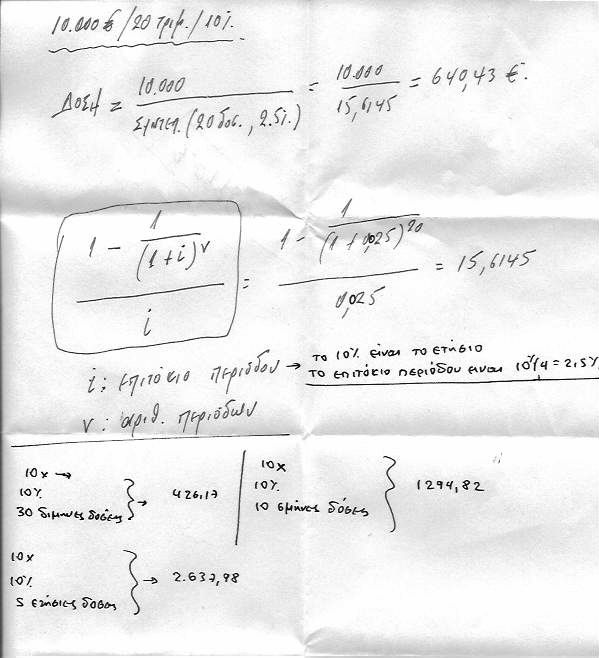 10.000 € / 20 τριμ. / 10%.
Δοση = 10.000 / Συντελ. (20 δοσ., 2.5%.) = 10.000 / 15,6145 = 640,43 €.
1 - 1 / (1+i)^ν / i = 1 - 1 / (1+0,025)^20 / 0,025 = 15,6145
i: επιτόκιο περιόδου → το 10% ειναι το ετήσιο
το επιτόκιο περιόδου ειναι 10%/4 = 2.5%
ν: αριθ. περιόδων
10x →
10%
30 διμηνες δόσεις
→ 426,17
10x
10%
10 6μήνες δόσεις
1294,82
10x
10%
5 ετήσιες δοσεις
→ 2.637,98